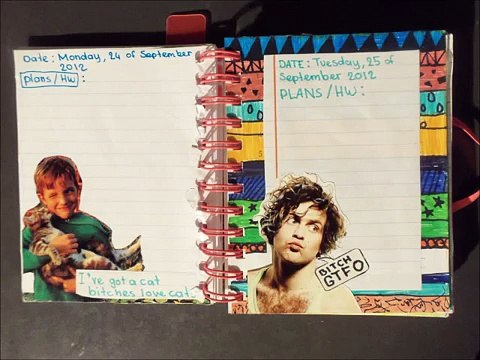 Date: Monday, 24 of September
2012
Plans/HW:
I've got a cat
bitches love cat.
DATE: Tuesday, 25 of
September 2012
PLANS/HW:
BITCH
GTFO